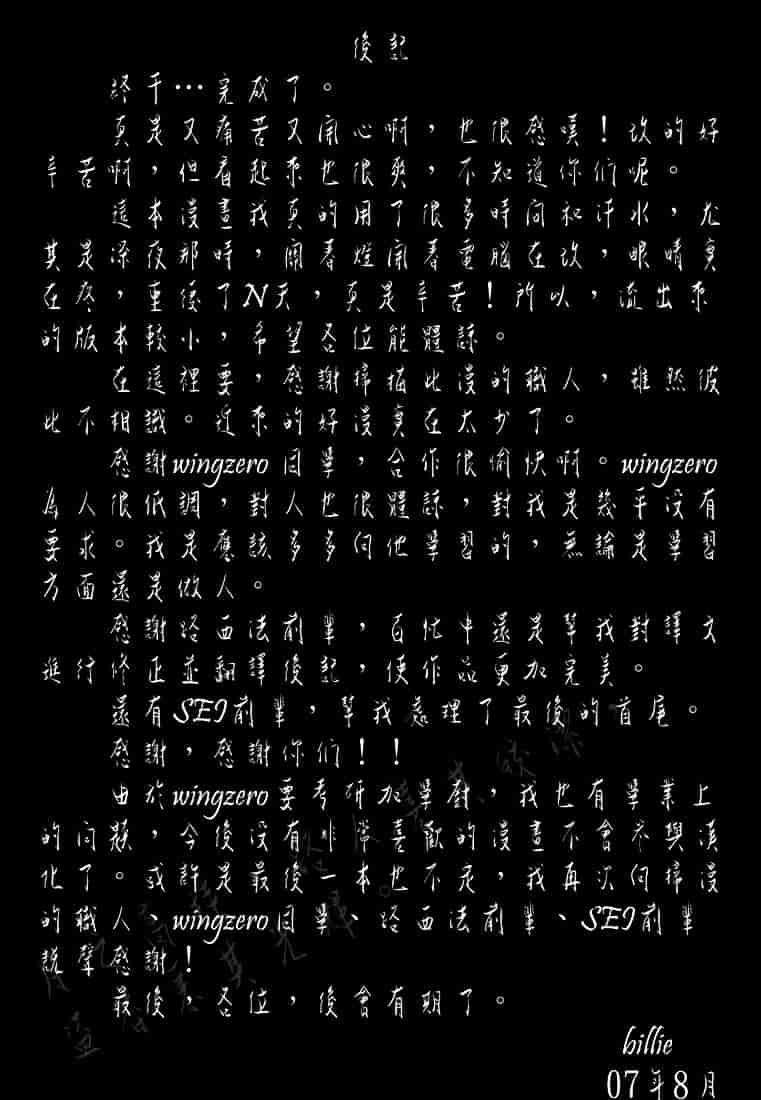 後記
終于…完成了。
真是又痛苦又開心啊，也很感嘆！改的好
辛苦啊，但看起來也很爽，不知道你们呢。
這本漫畫我真的用了很多時间和汗水，尤
其是深夜那時，開着燈開着電腦在改，眼睛真
在疼，重復了N天，真是辛苦！所以，流出來
的版本較小，希望各位能體諒。
在這裡要，感謝掃描此漫的職人，雖然彼
此不相識。近來的好漫實在太少了。
感謝wingzero同學，合作很愉快啊。wingzero
為人很低調，對人也很體諒，對我是幾乎没有
要求。我是應該多多向他學習的，無論是學習
方面還是做人。
感謝路西法前輩，百忙中還是幫我對譯文
進行修正並翻譯後記，使作品更加完美。
還有SEI前輩，幫我處理了最後的首尾。
感謝，感謝你们！！
由於wingzero要考研加學廚，我也有學業上
的问題，今後没有非常喜歡的漫畫不會參與漢
化了。或許是最後一本也不定，我再次向掃漫
的職人、wingzero同學、路西法前輩、SEI前輩
說聲感謝！
最後，各位，後會有期了。
billie
07年8月